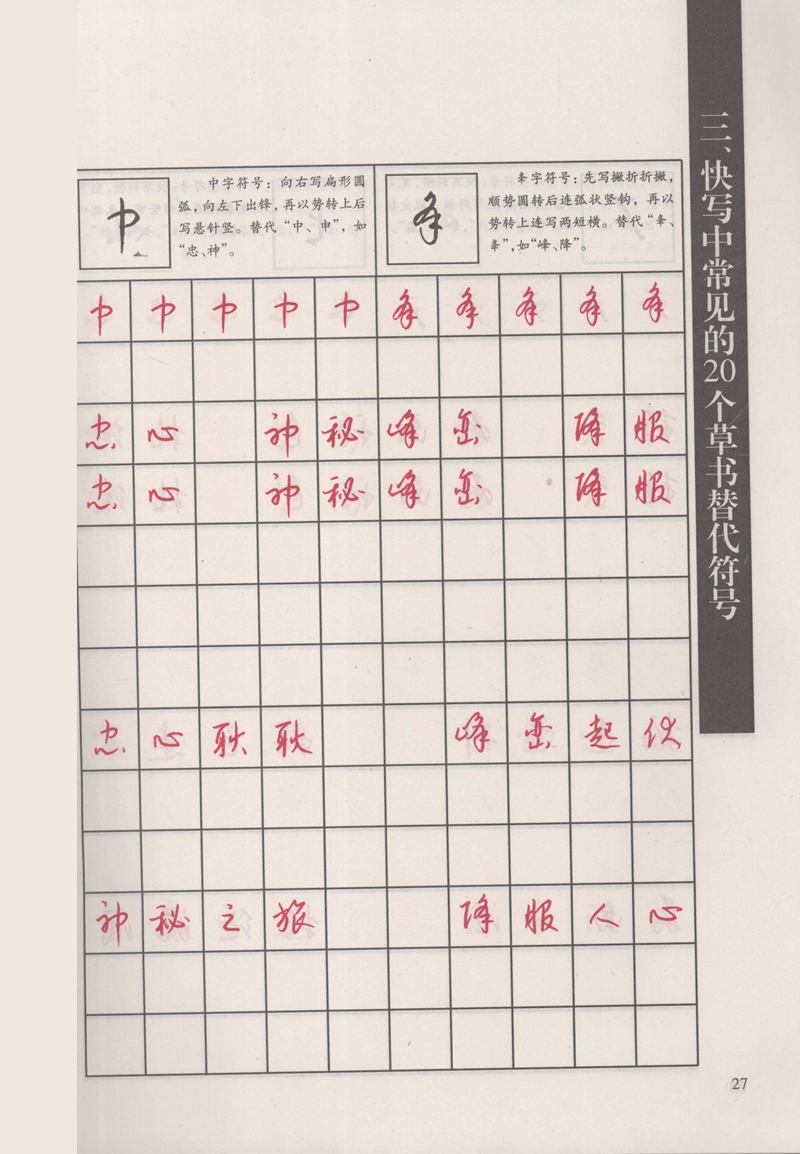 三、快写中常见的20个草书替代符号
中
中字符号：向右写扁形圆
弧，向左下出锋，再以势转上后
写悬针竖。替代“中、申”，如
“忠、神”。
夆
夆字符号：先写撇折折撇，
顺势圆转后连弧状竖钩，再以
势转上连写两短横。替代“夆、
夅”，如“峰、降”。
中 中 中 中 中 夆 夆 夆 夆 夆
忠 心 神 秘 峰 峦 降 服
忠 心 神 秘 峰 峦 降 服
忠 心 耿 耿 峰 峦 起 伏
神 秘 之 旅 降 服 人 心
27